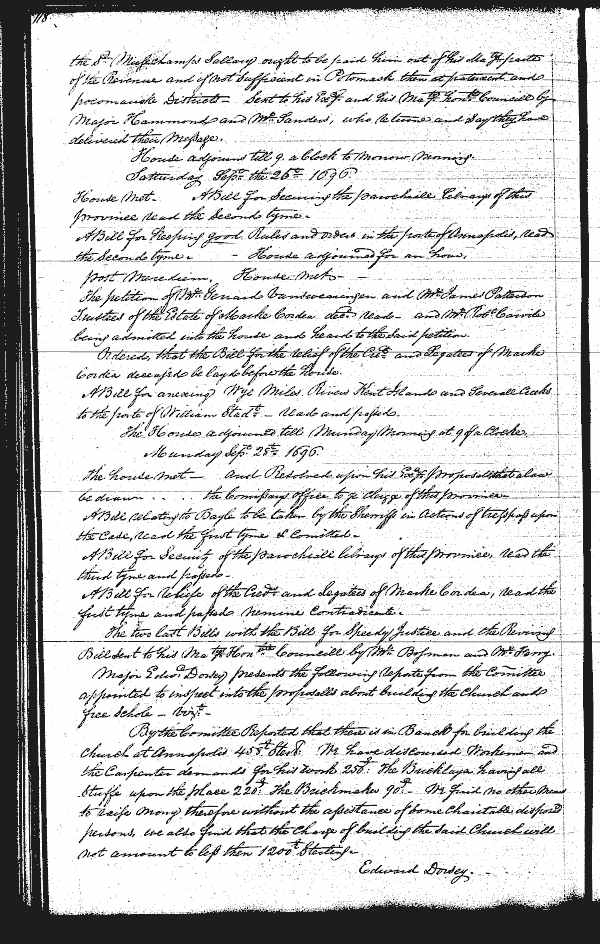 118
the sd. Muschamps Sallary ought to be paid him out of his Matys parte
of the Revenue and if not sufficient in Potomack then at patuxent and
pocomoake Districts – Sent to his Exy. and his Matys honble Councill by
Major Hammond and Mr. Sanders, who returne and say they have
delivered their Message.
House adjourns till 9 a Clock to morrow morning.
Satturday Septr. the 26th 1696.
House met. A Bill for Securing the parochiall Librarys of this
province read the Second tyme.
A Bill for Keeping good Rules and orders in the porte of Annapolis, read
the Second tyme. – House adjourned for an hour.
post Meridiem. House met –
The petition of Mr. Gerrard Vansweareingen and Mr. James Patterson
Trustees of the Estate of Marke Cordea decd. read – and Mr. Robt. Carvile
being admitted into the house and heard to the said petition.
Ordered, that the Bill for the releif of the Credt. and Legatees of Marke
Cordea deceased be layd before the House.
A Bill for anexing Wye Miles Rivers Kent Island and Severall Creeks
to the porte of William Stadt. – read and passed.
The House adjourned till Munday Morning at 9 of a Clocke.
Munday Sepr. 28th 1696.
The house met – And Resolved upon his Exys proposall that a law
be drawn . . . . the Comissary office to ye Clergy of this province –
A Bill relating to Bayle to be taken by the Sherriffs in Actions of trespass upon
the Case, read the first tyme & Comitted.
A Bill for Security of the parochiall librarys of this province, read the
third tyme and passed.
A Bill for releife of the Credt. and Legatees of Marke Cordea, read the
first tyme and passed nemine Contradicente.
The two last Bills with the Bill for Speedy Justice and the Reviving
Bill sent to his Matys Honble Councill by Mr. Boseman and Mr. Harry.
Major Edwd. Dorsey presents the following Reporte from the Comittee
appointed to inspect into the proposalls about building the Church and
free Schole – vizt. –
By the Comittee Reported that there is in Banck for building the
Church at Annapolis 458£ Sterl. We have discoursed Workemen and
the Carpenter demands for his work 250£. The Bricklayer having all
Stuffe upon the place 220£. The Brickmaker 90£. – We find no other Means
to raise mony therefore without the assistance of Some Charitable disposed
persons, we also find that the Charge of building the said Church will
not amount to less then 1200£ Sterling.
Edward Dorsey.